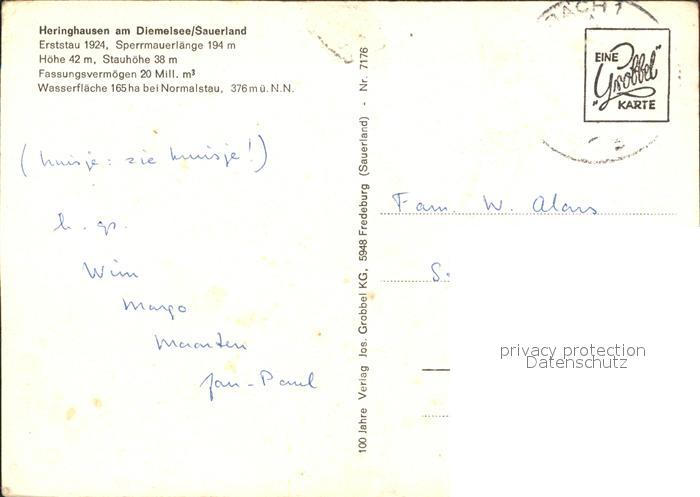 Heringhausen am Diemelsee/Sauerland
Erststau 1924, Sperrmauerlänge 194 m
Höhe 42 m, Stauhöhe 38 m
Fassungsvermögen 20 Mill. m³
Wasserfläche 165 ha bei Normalstau, 376 m ü. N.N.
(huisje: zie kruisje!)
h. gr.
Wim
Margo
Maarten
Jan-Paul
100 Jahre Verlag Jos. Grobbel KG, 5948 Fredeburg (Sauerland) - Nr. 7176
BACH 1
EINE
"Grobbel"
KARTE
Fam. W. Alans
S.
privacy protection
Datenschutz